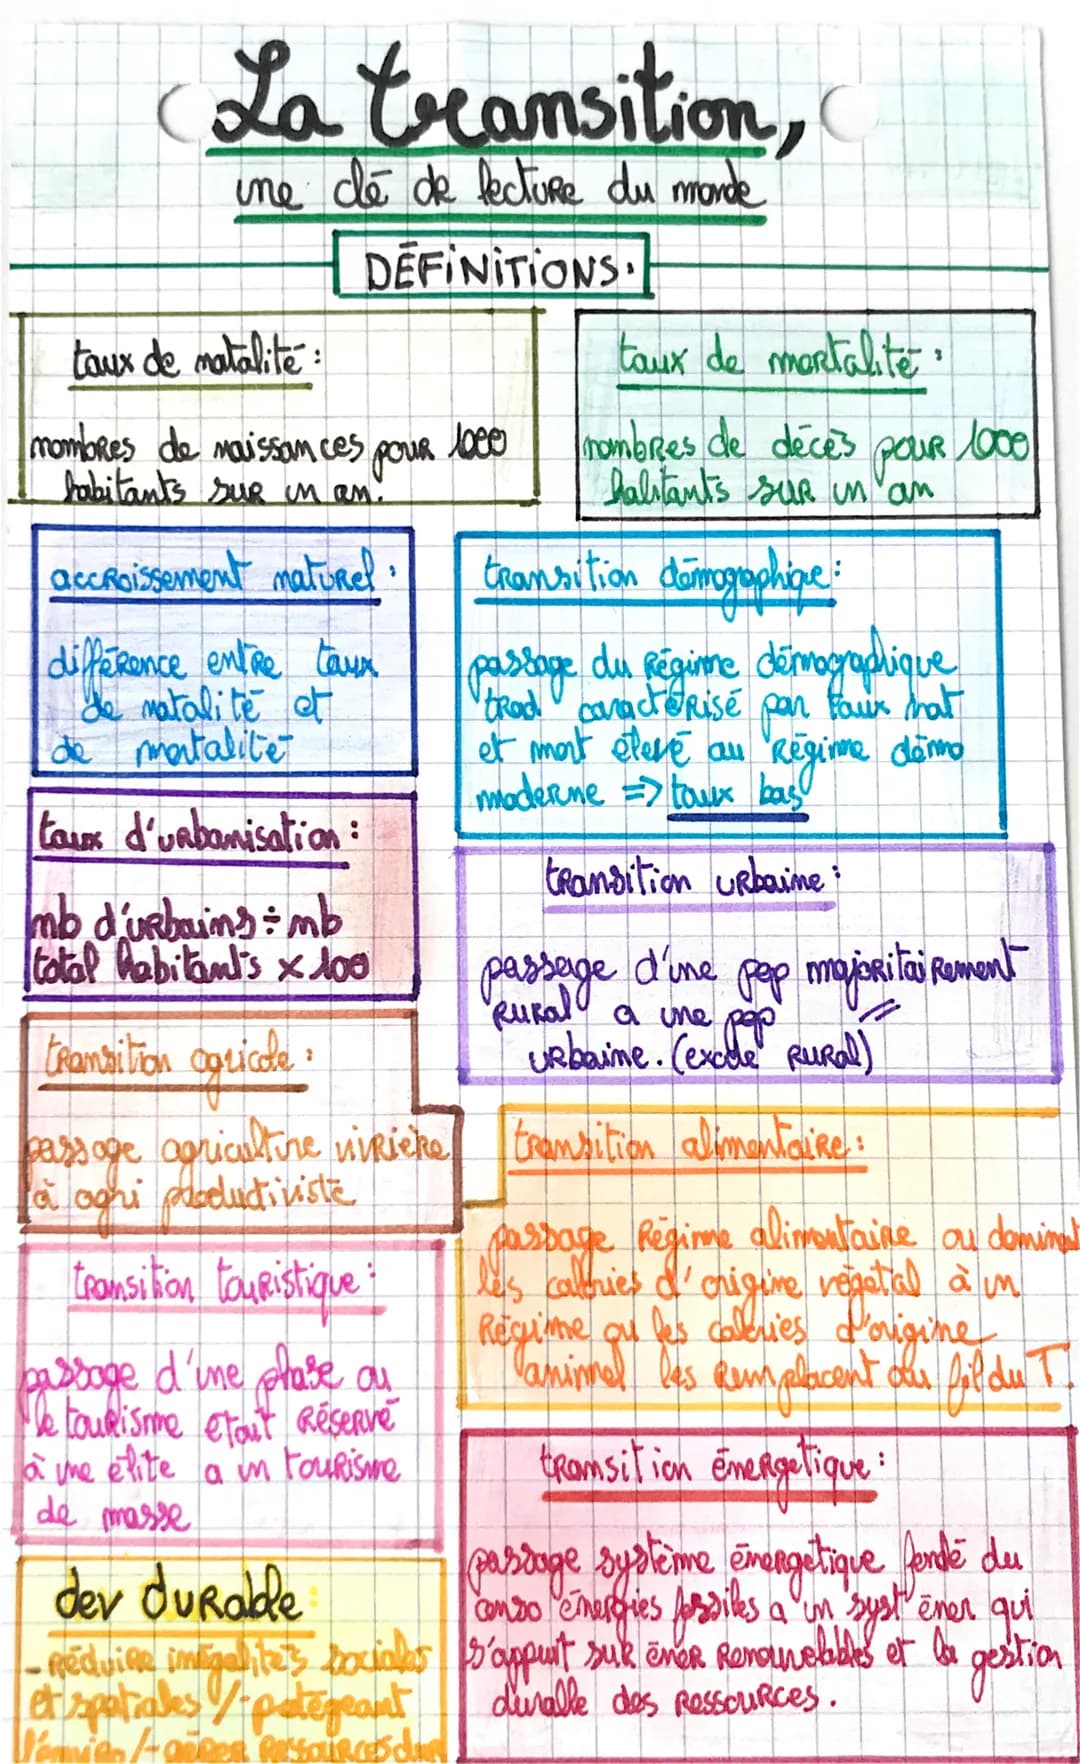 La transition,
une clé de lecture du monde
DÉFINITIONS.
taux de natalité :
nombres de naissances pour 1000
habitants sur un an.
taux de mortalité :
nombres de décès pour 1000
habitants sur un an
accroissement naturel :
différence entre taux
de natalité et
de mortalité
transition démographique :
passage du régime démographique
trad caractérisé par taux nat
et mort élevé au régime démo
moderne => taux bas
taux d'urbanisation :
nb d'urbains ÷ nb
total habitants x 100
transition urbaine :
passage d'une pop majoritairement
rural a une pop "
urbaine. (exode rural)
transition agricole :
passage agriculture vivrière
à agri productiviste
transition alimentaire :
passage régime alimentaire ou dominent
les calories d'origine végétal à un
régime ou les calories d'origine
animal les remplacent au fil du T.
transition touristique :
passage d'une phase ou
le tourisme etait réservé
à une élite a un tourisme
de masse
transition énergetique :
passage système énergetique fondé du
conso énergies fossiles a un syst éner qui
s'appuit sur éner renouvelables et la gestion
durable des ressources.
dev durable :
- réduire inégalités sociales
et spatiales /- protégeant
l'enviro /- gérer ressources